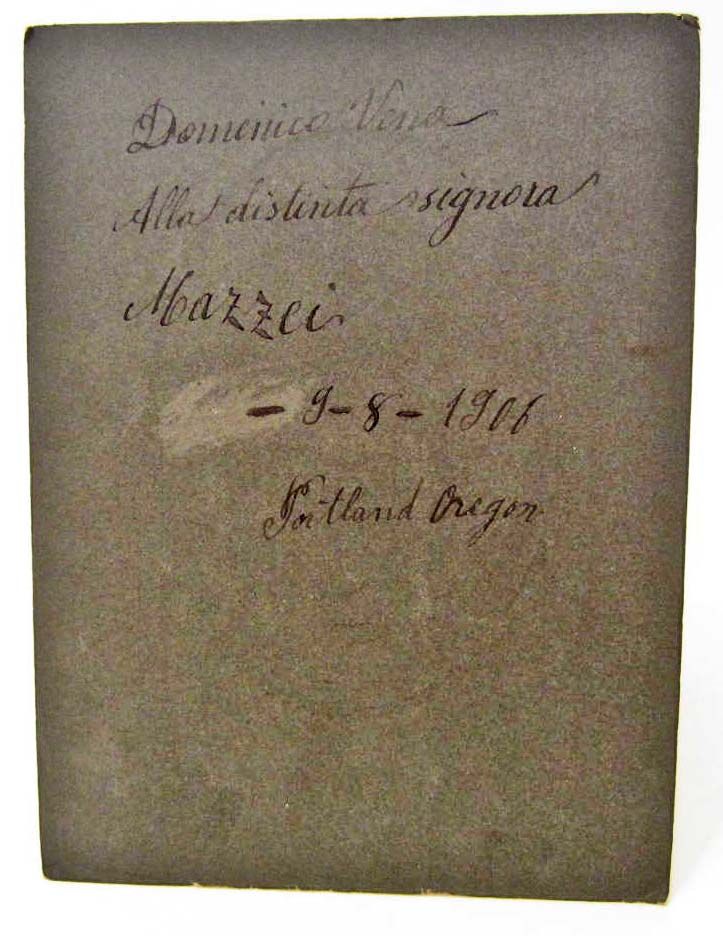 Domenico Vena
Alla distinta signora
Mazzei
- 9-8-1906
Portland Oregon